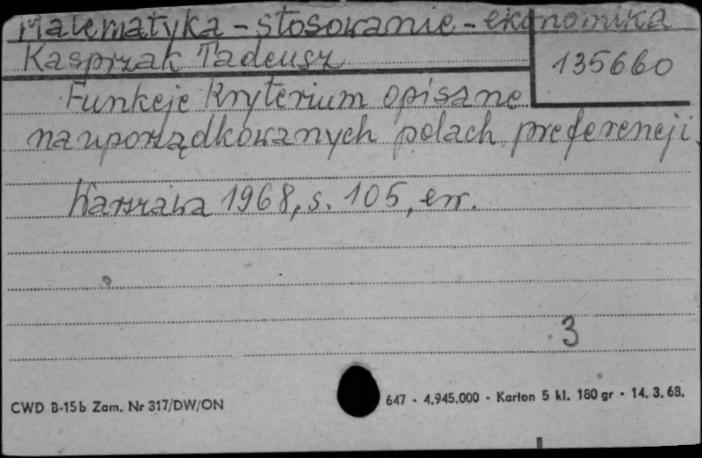 Matematyka - stosowanie - ekonomika
Kasprzak Tadeusz
135660
Funkcje kryterium opisane
na uporządkowanych polach preferencji.
Warszawa 1968, s. 105, err.
3
CWD B-15b Zam. Nr 317/DW/ON
647 - 4.945.000 - Karton 5 kl. 180 gr - 14. 3. 68.